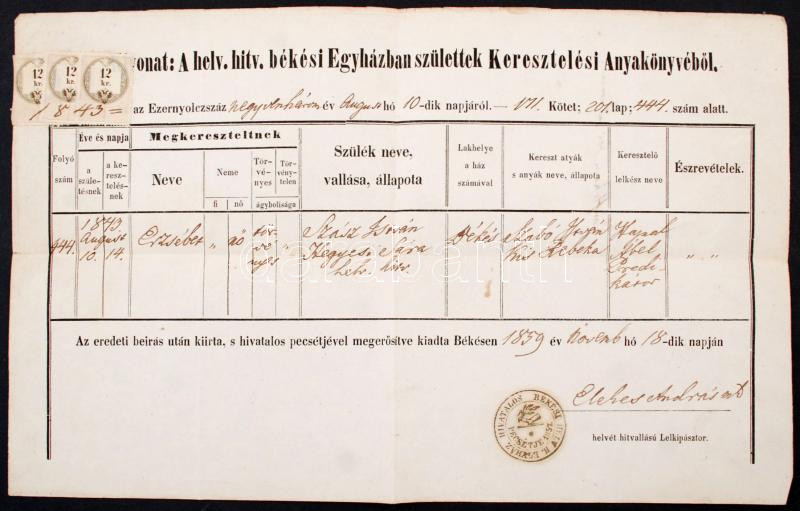 12 kr. 12 kr. 12 kr.
vonat: A helv. hitv. békési Egyházban születtek Keresztelési Anyakönyvéből.
1843= az Ezernyolczszáz negyvenhárom év August hó 10-dik napjáról.— VII. Kötet; 201. lap; 444. szám alatt.
Folyó szám
Éve és napja
a születésnek
a keresztelésnek
Megkereszteltnek
Neve
Neme
fi
nő
Törvényes
Törvénytelen
ágybolisága
Szülék neve,
vallása, állapota
Lakhelye
a ház
számával
Kereszt atyák
s anyák neve, állapota
Keresztelő
lelkész neve
Észrevételek.
444.
1843
August
10. 14.
Erzsébet
„
nő
törvényes
„
Szász István
Hegyesi Sára
helv. hitv.
Békés
Szabó István
Kis Rebeka
Hajnal
Ábel
Predikátor
„ „
Az eredeti beirás után kiirta, s hivatalos pecsétjével megerősitve kiadta Békésen 1859 év Novemb hó 18-dik napján
Elekes András mk
helvét hitvallású Lelkipásztor.
BÉKÉSI HELV. H. EGYHÁZ HIVATALOS
PECSÉTJE
darabanth